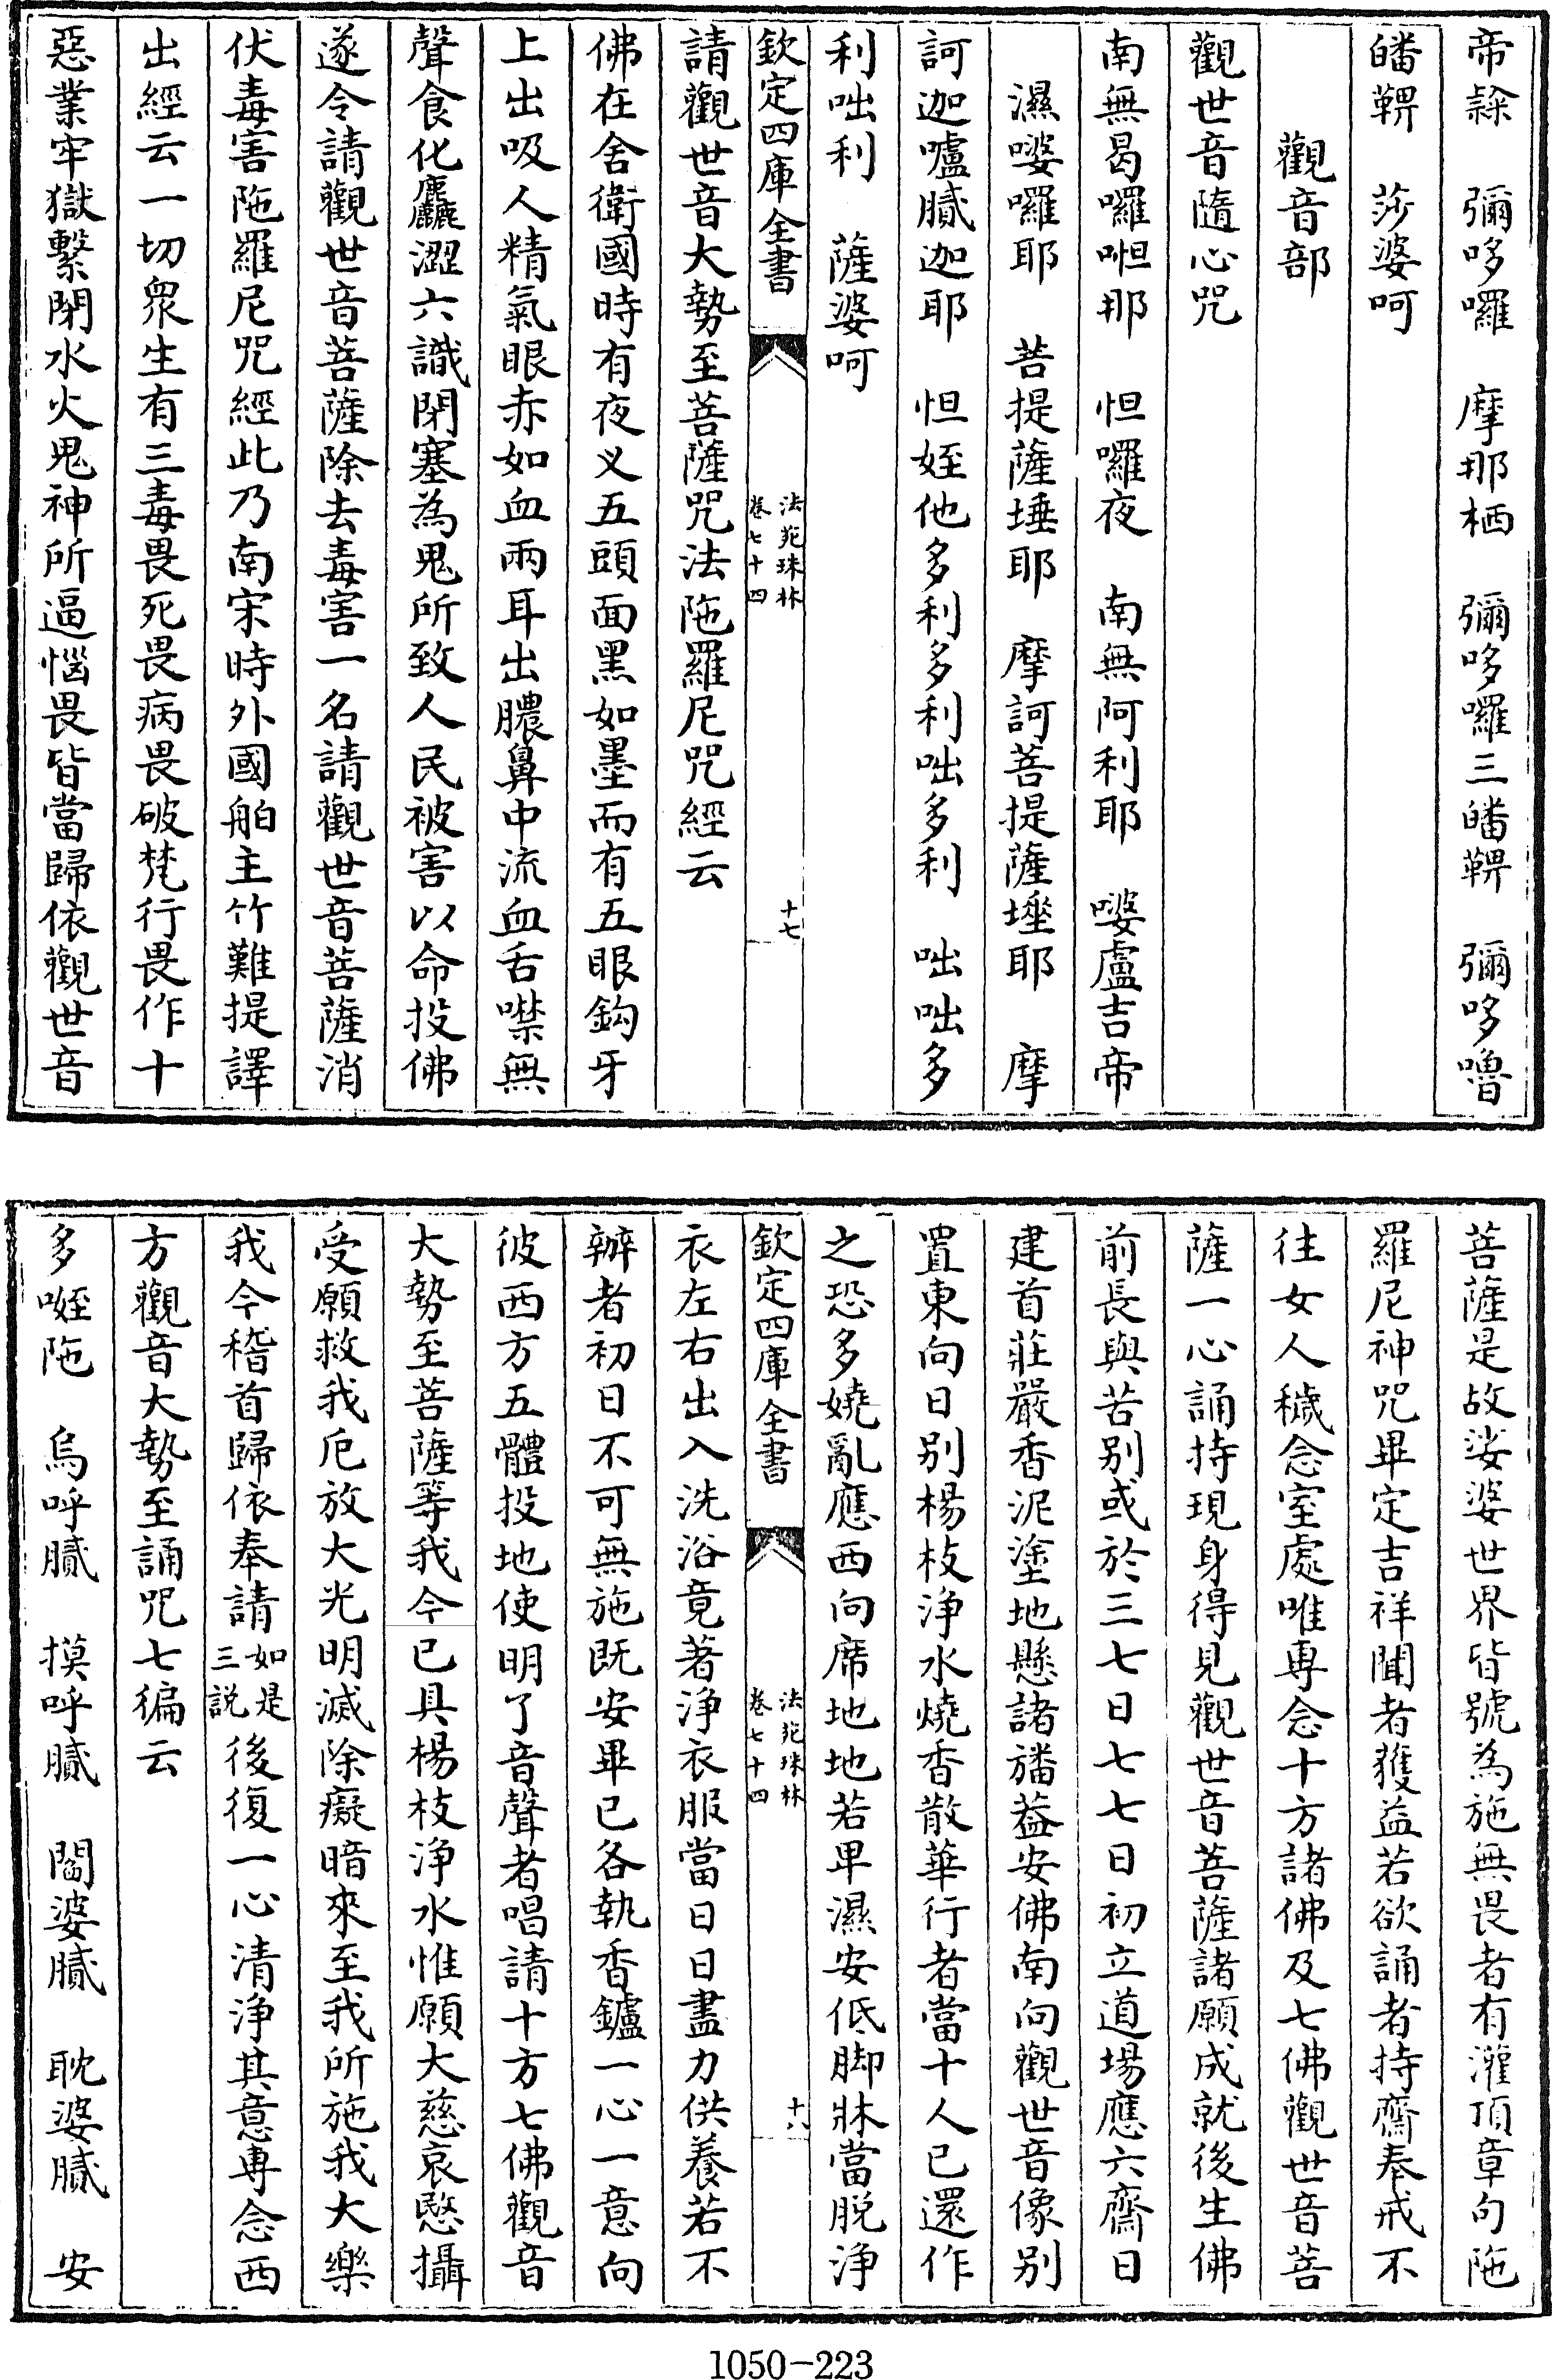 帝隸　彌哆囉　摩那栖　彌哆囉三皤鞞　彌哆嚕
皤鞞　莎婆呵
觀音部
觀世音隨心咒
南無曷囉怛那　怛囉夜　南無阿利耶　婆盧吉帝
濕婆囉耶　菩提薩埵耶　摩訶菩提薩埵耶　摩
訶迦嚧膩迦耶　怛姪他多利多利咄多利　咄咄多
利咄利　薩婆呵
欽定四庫全書
法苑珠林
卷七十四
十七
請觀世音大勢至菩薩咒法陁羅尼咒經云
佛在舍衛國時有夜义五頭面黑如墨而有五眼鈎牙
上出吸人精氣眼赤如血兩耳出膿鼻中流血舌噤無
聲食化麤澀六識閉塞為鬼所致人民被害以命投佛
遂令請觀世音菩薩除去毒害一名請觀世音菩薩消
伏毒害陁羅尼咒經此乃南宋時外國舶主竹難提譯
出經云一切衆生有三毒畏死畏病畏破梵行畏作十
惡業牢獄繫閉水火鬼神所逼惱畏皆當歸依觀世音
菩薩是故娑婆世界皆號為施無畏者有灌頂章句陁
羅尼神咒畢定吉祥聞者獲益若欲誦者持齋奉戒不
往女人穢念室處唯専念十方諸佛及七佛觀世音菩
薩一心誦持現身得見觀世音菩薩諸願成就後生佛
前長與苦别或於三七日七七日初立道場應六齋日
建首莊嚴香泥塗地懸諸旛葢安佛南向觀世音像别
置東向日别楊枝浄水燒香散華行者當十人已還作
之恐多嬈亂應西向席地地若卑濕安低脚牀當脱浄
欽定四庫全書
法苑珠林
卷七十四
十八
衣左右出入洗浴竟著浄衣服當日日盡力供養若不
辦者初日不可無施既安畢已各執香鑪一心一意向
彼西方五體投地使明了音聲者唱請十方七佛觀音
大勢至菩薩等我今已具楊枝浄水惟願大慈哀愍攝
受願救我厄放大光明滅除癡暗來至我所施我大樂
我今稽首歸依奉請如是三説後復一心清浄其意専念西
方觀音大勢至誦咒七徧云
多咥陁　烏呼膩　摸呼膩　閻婆膩　耽婆膩　安
1050-223